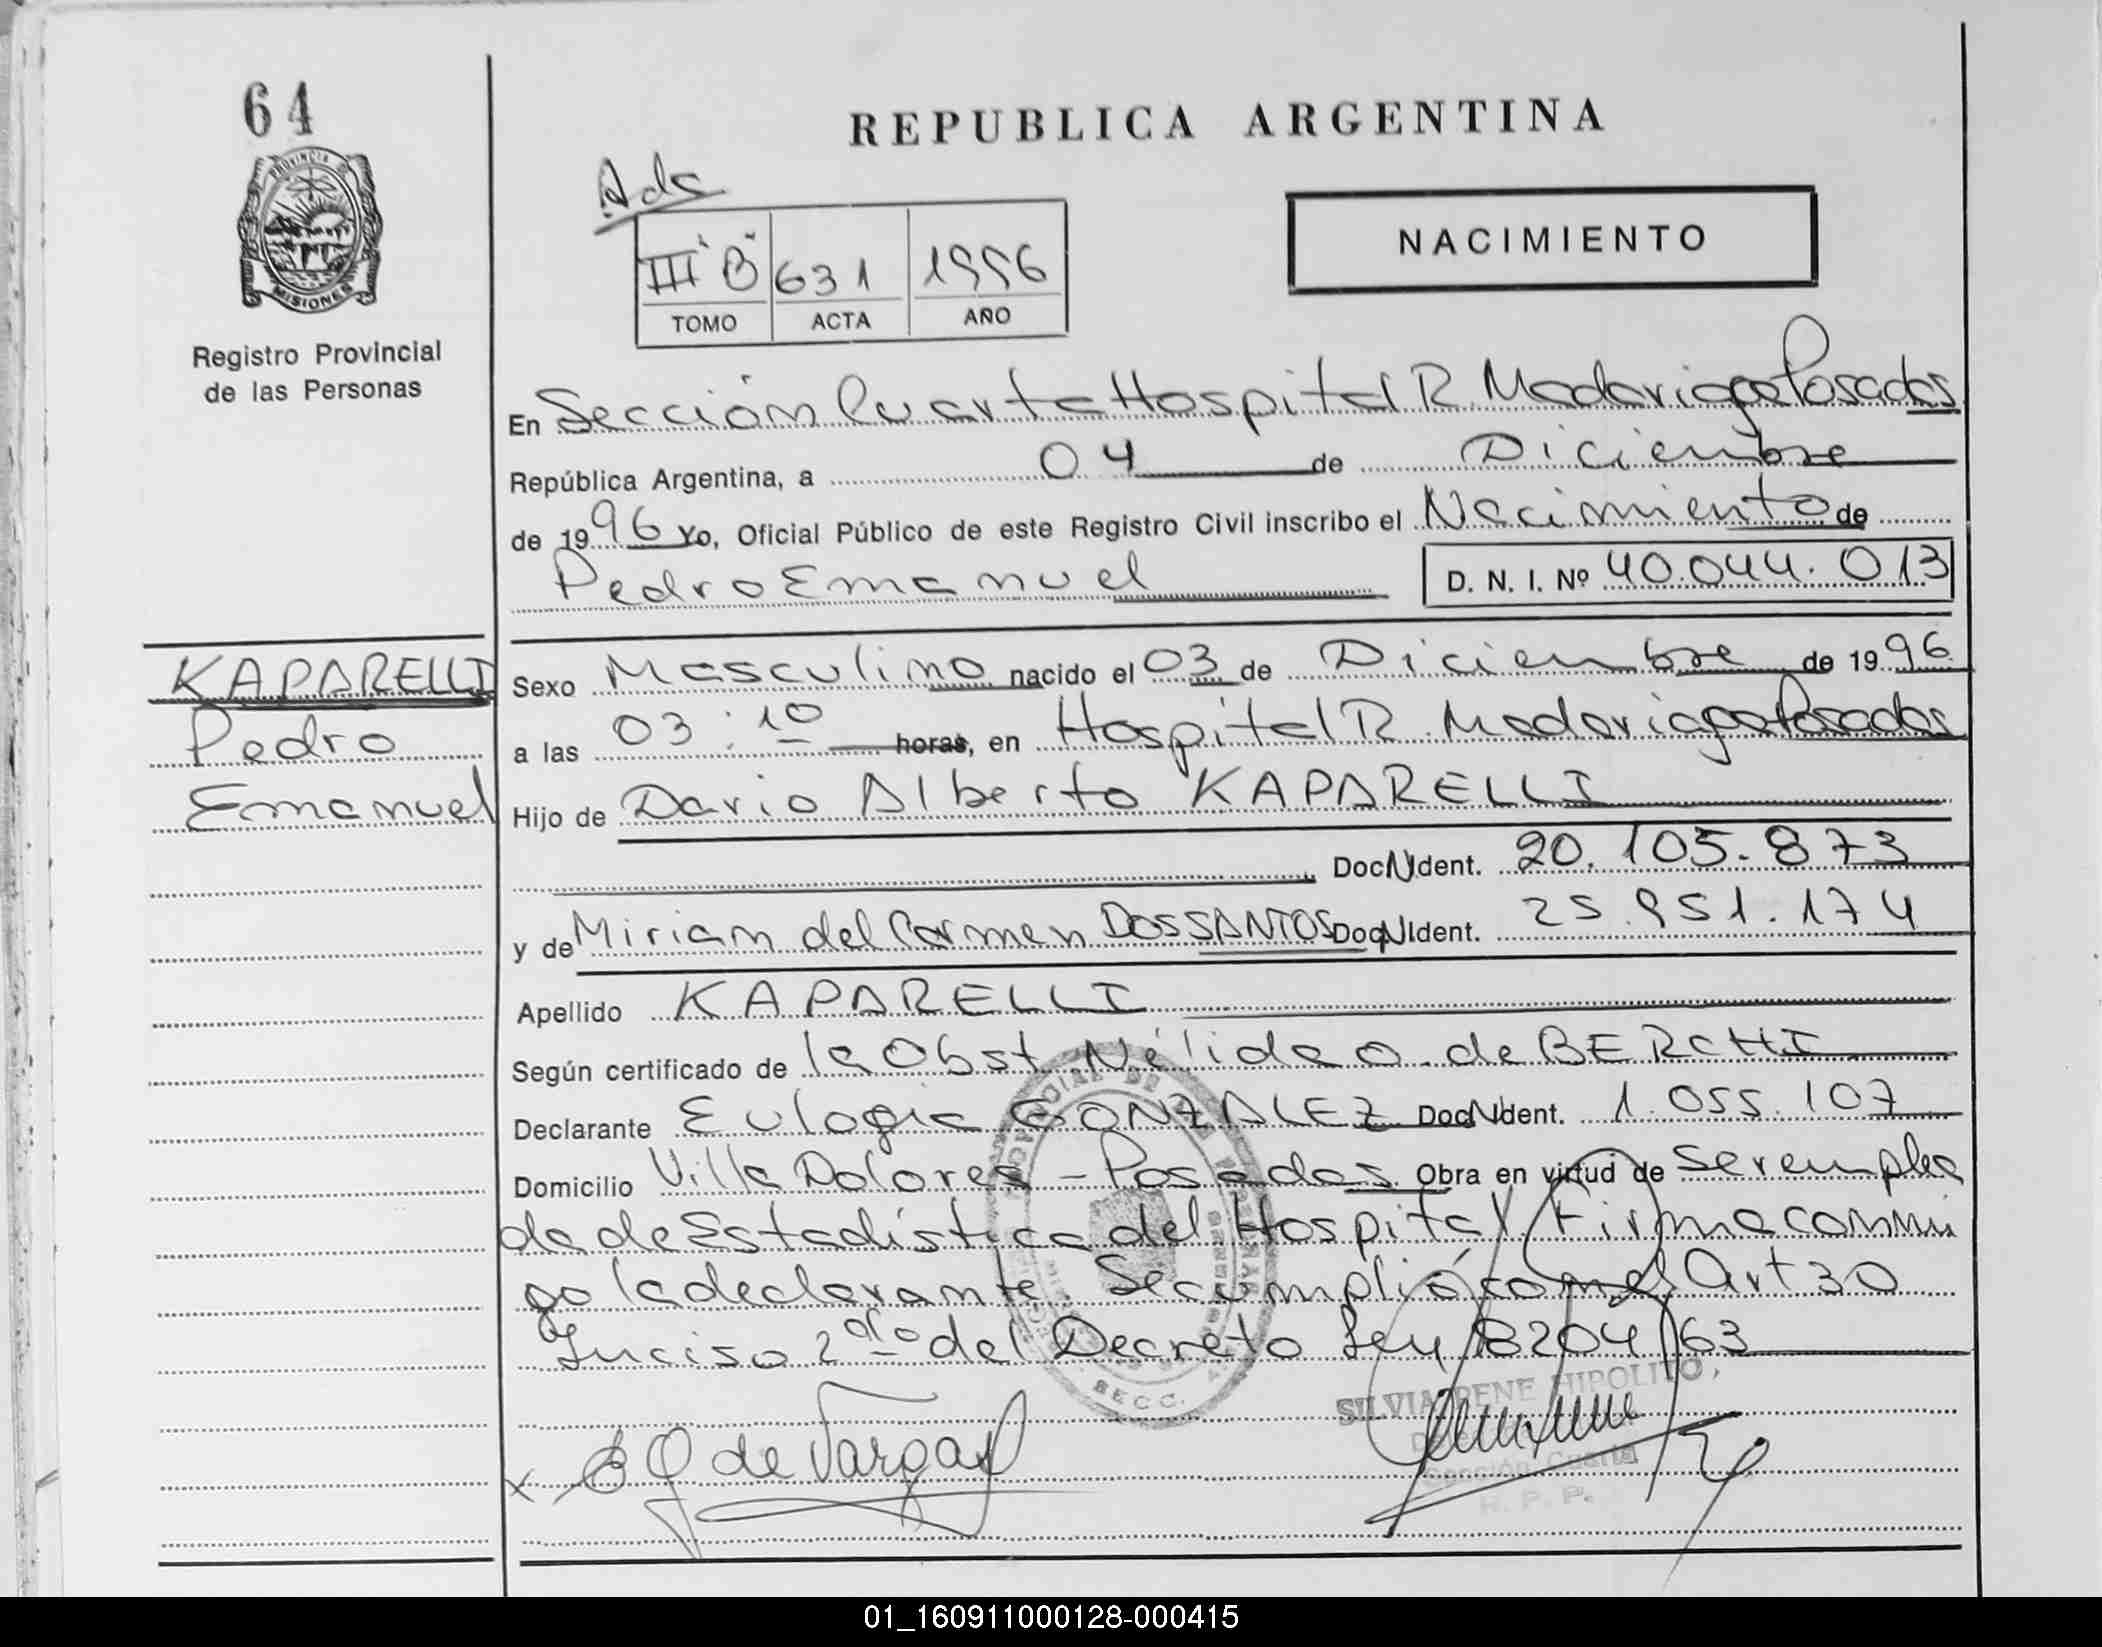 64
REPUBLICA ARGENTINA
PROVINCIA DE
MISIONES
Registro Provincial
de las Personas
Ads
III "B" 631 1996
TOMO ACTA AÑO
NACIMIENTO
En Sección Cuarta Hospital R. Madariaga Posadas
República Argentina, a 04 de Diciembre
de 1996 Yo, Oficial Público de este Registro Civil inscribo el Nacimiento de
Pedro Emanuel D. N. I. Nº 40.044.013
KAPARELLI
Pedro
Emanuel
Sexo Masculino nacido el 03 de Diciembre de 1996
a las 03:10 horas, en Hospital R. Madariaga Posadas
Hijo de Dario Alberto KAPARELLI
Doc N Ident. 20.105.873
y de Miriam del Carmen DOS SANTOS Doc N Ident. 25.951.174
Apellido KAPARELLI
Según certificado de la Obst. Nélida O. de BERCHI
Declarante Eulogia GONZALEZ Doc N Ident. 1.055.107
Domicilio Villa Dolores - Posadas Obra en virtud de ser emplea
da de Estadística del Hospital. Firma conmi
go la declarante. Se cumplió con el Art 30
Inciso 2do del Decreto Ley 8204/63
SECC.
SILVIA IRENE HIPOLITO
Sección Cuarta
R. P. P.
E G de Vargas
01_160911000128-000415